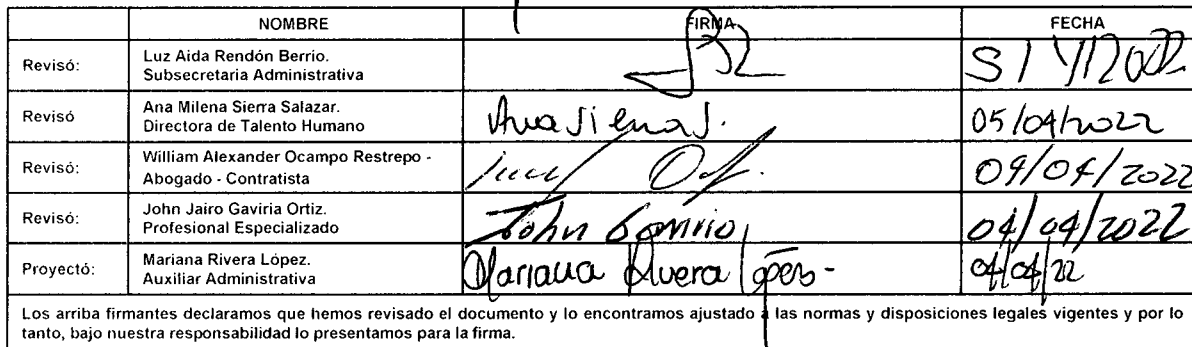 NOMBRE FIRMA FECHA
Revisó: Luz Aida Rendón Berrio.
Subsecretaria Administrativa
Revisó Ana Milena Sierra Salazar.
Directora de Talento Humano
Ana Sierra S. 05/04/2022
Revisó: William Alexander Ocampo Restrepo -
Abogado - Contratista
04/04/2022
Revisó: John Jairo Gaviria Ortiz.
Profesional Especializado
John Gaviria 04/04/2022
Proyectó: Mariana Rivera López.
Auxiliar Administrativa
Mariana Rivera López - 04/04/22
Los arriba firmantes declaramos que hemos revisado el documento y lo encontramos ajustado a las normas y disposiciones legales vigentes y por lo
tanto, bajo nuestra responsabilidad lo presentamos para la firma.